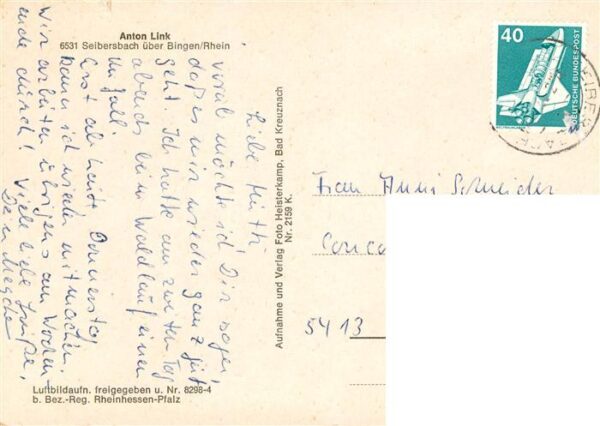 Anton Link
6531 Seibersbach über Bingen/Rhein
Liebe Mutti
vorab möchte ich Dir sagen,
daß es mir wieder ganz gut
geht. Ich hatte am zweiten Tag
abends beim Waldlauf einen
Unfall.
Erst ab heute Donnerstag
kann ich wieder mitmachen.
Wir arbeiten übrigens am Wochen-
ende durch! Viele liebe Grüße,
Aufnahme und Verlag Foto Heisterkamp, Bad Kreuznach
Nr. 2159 K.
Luftbildaufn. freigegeben u. Nr. 8298-4
b. Bez.-Reg. Rheinhessen-Pfalz
40
DEUTSCHE BUNDESPOST
Frau Anni Schneider
5413